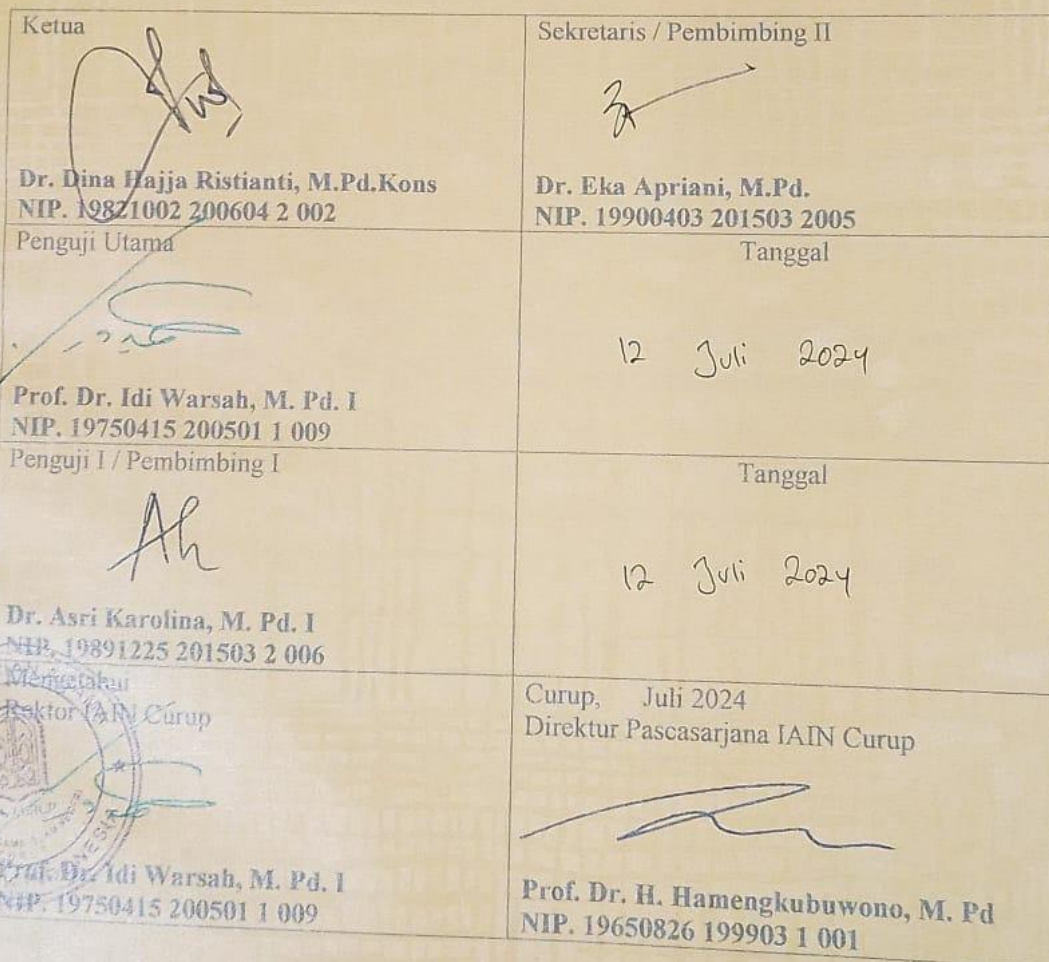 Ketua
Dr. Dina Hajja Ristianti, M.Pd.Kons
NIP. 19821002 200604 2 002
Sekretaris / Pembimbing II
Dr. Eka Apriani, M.Pd.
NIP. 19900403 201503 2005
Penguji Utama
Prof. Dr. Idi Warsah, M. Pd. I
NIP. 19750415 200501 1 009
Tanggal
12 Juli 2024
Penguji I / Pembimbing I
Dr. Asri Karolina, M. Pd. I
NIP. 19891225 201503 2 006
Tanggal
12 Juli 2024
Mengetahui
Rektor IAIN Curup
Prof. Dr. Idi Warsah, M. Pd. I
NIP. 19750415 200501 1 009
Curup, Juli 2024
Direktur Pascasarjana IAIN Curup
Prof. Dr. H. Hamengkubuwono, M. Pd
NIP. 19650826 199903 1 001